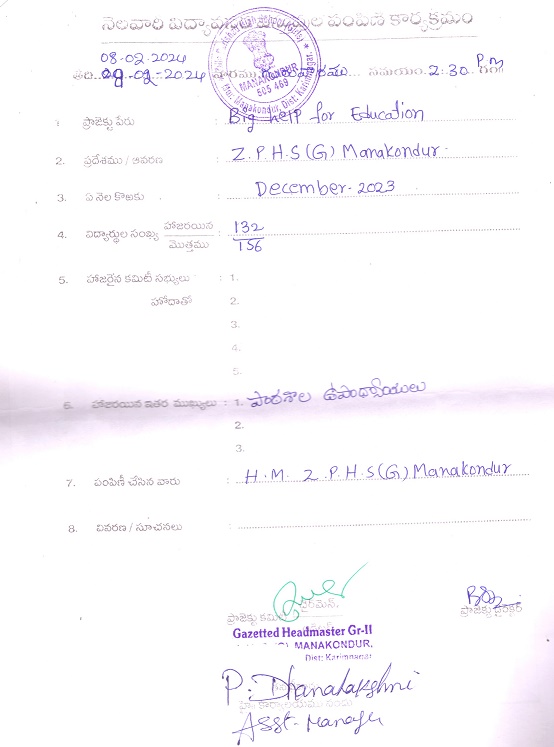 నెలవారి విద్యా పంపిణీ కార్యక్రమం
08-02-2024
తేది..09-02-2024 సమయం.2:30 P.m
MANAKONDUR
505 469
ప్రాజెక్టు పేరు : Big help for Education
2. ప్రదేశము / ఆవరణ : Z.P.H.S(G) Manakondur.
3. ఏ నెల కొఱకు : December-2023
4. విద్యార్థుల సంఖ్య హాజరయిన : 132
మొత్తము 156
5. హాజరైన కమిటీ సభ్యులు : 1.
హోదాతో 2.
3.
4.
5.
6. హాజరయిన ఇతర ముఖ్యులు : 1. పాఠశాల ఉపాధ్యాయులు
2.
3.
7. పంపిణీ చేసిన వారు : H.M. Z.P.H.S(G) Manakondur
8. వివరణ / సూచనలు :
ప్రాజెక్టు కమిటీ చైర్మెన్. ప్రాజెక్టు డైరెక్టర్
Gazetted Headmaster Gr-II
(G) MANAKONDUR.
Dist: Karimnagar
P. Dhanalakshmi
Asst-Manager